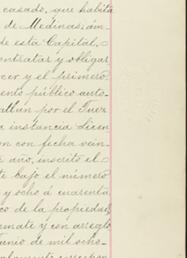 casado, que habita
de Medinas, ám-
de esta Capital,
contratar y obligar
cer y el primero
ento público auto-
por el Juez
a instancia dicen
on con fecha vein-
año, inscrito el
te bajo el número
y ocho á cuarenta
co de la propiedad
remate y con arreglo
Junio de mil ocho-